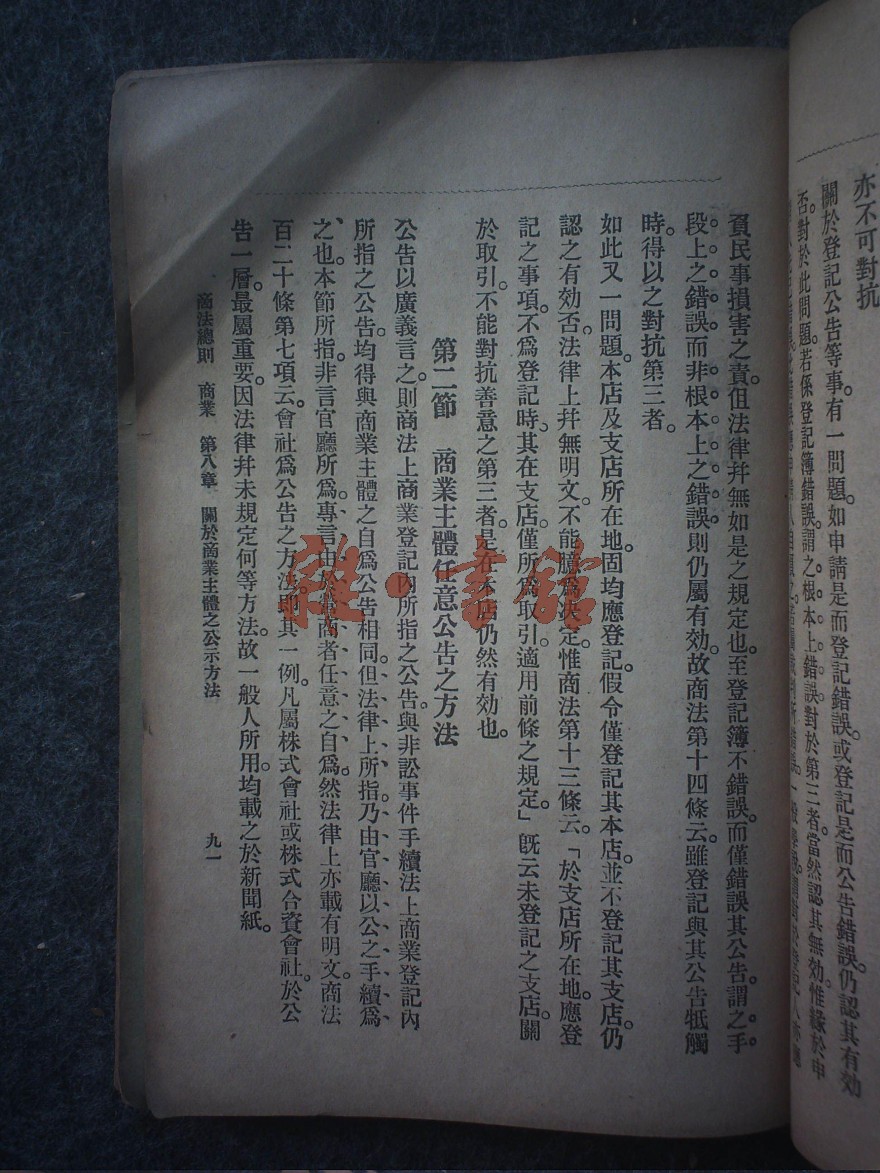 亦不可對抗
關於登記公告等事。有一問題。如申請是而登記錯誤。或登記是而公告錯誤。仍認其有効
否。對於此問題。若係登記簿錯誤。謂之根本上錯誤。對於第三者。當然認其無効。惟緣於申
負民事損害之責。但法律幷無如是之規定也。至登記簿不錯誤。而僅錯誤其公告。謂之手
段上之錯誤。而非根本上之錯誤。則仍屬有効。故商法第十四條云。雖登記與其公告牴觸
時。得以之對抗第三者。
如此又一問題。本店及支店所在地。固均應登記。假令僅登記其本店。並不登記其支店。仍
認之有効否。法律上幷無明文。不能臆爲決定。惟商法第十三條云。「於支店所在地。應登
記之事項。不爲登記時。其在支店。僅所爲取引。適用前條之規定。」旣云未登記之支店。關
於取引。不能對抗善意之第三者。是在本店仍然有効也。
第二節　商業主體任意公告之方法
公告以廣義言之。則商法上商業登記內所指之公告。與非訟事件手續法上商業登記內
所指之公告。均得與商業主體之自爲公告相同。但法律上所指。乃由官廳以公之手續爲
之也。本節所指。非言官廳所爲。專言由於營商者任意之自爲。然法律上亦載有明文。商法
百二十條第七項云。會社爲公告之方法。卽其一例。凡屬株式會社或株式合資會社。於公
告一層。最屬重要。因法律幷未規定何等方法。故一般人所用。均載之於新聞紙。
商法總則　商業　第八章　關於商業主體之公示方法
九一
雜書館